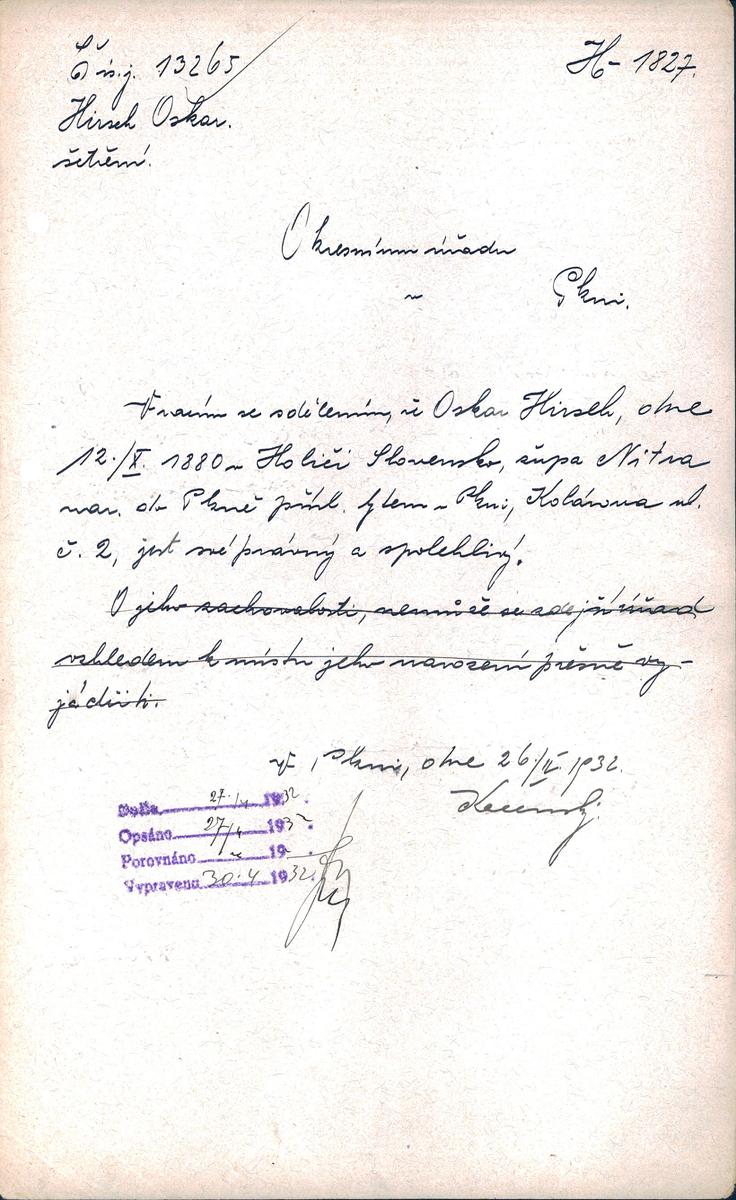 Čís.j. 13265
H- 1827.
Hirsch Oskar.
šetření.
Okresnímu úřadu
v Plzni.
Vracím se sdělením, že Oskar Hirsch, dne
12./X. 1880 v Holiči Slovensko, župa Nitra
nar. do Plzně přísl. bytem v Plzni, Kolárova ul.
č. 2, jest své právný a spolehlivý.
O jeho zachovalosti, nemůže se zdejší úřad
vzhledem k místu jeho narození přesně vy-
jádřiti.
V Plzni, dne 26/IV. 1932.
Došla 27./4 1932.
Opsáno 27/4 1932.
Porovnáno " 19
Vypraveno 30.4 1932.